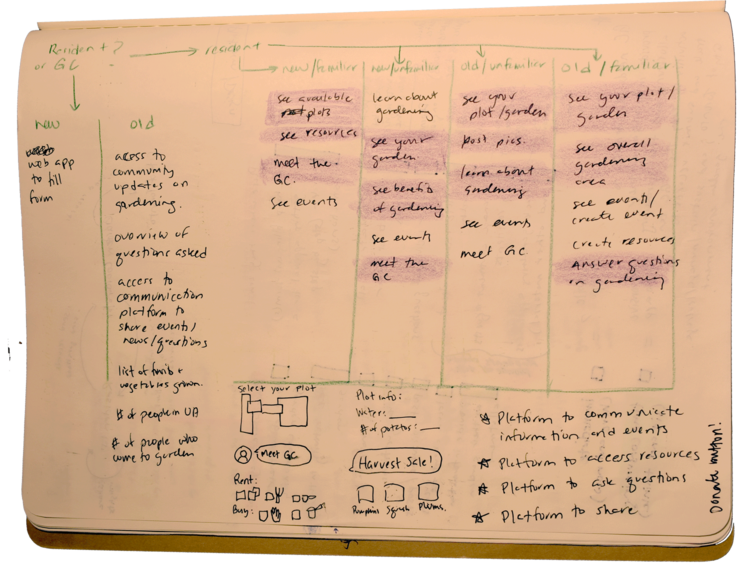 Resident?
or GC
resident
new/familiar
new/unfamiliar
old/unfamiliar
old/familiar
new
web app
to fill
form
old
access to
community
updates on
gardening.
overview of
questions asked
access to
communication
platform to
share events/
news/questions
list of fruits +
vegetables grown.
# of people in UA
# of people who
come to garden
see available
plots
see resources
meet the
GC.
see events
learn about
gardening
see your
garden
see benefits
of gardening
see events
meet the
GC
see your
plot/garden
post pics.
learn about
gardening
see events
meet GC
see your plot/
garden
see overall
gardening
area
see events/
create event
create resources
Answer questions
on gardening
Select your plot
Meet GC
Rent:
Buy:
Plot info:
Water:
# of potatos:
Harvest Sale!
Pumpkins Squash Plums.
Platform to communicate
information and events
Platform to access resources
Platform to ask questions
Platform to share
Donate button!